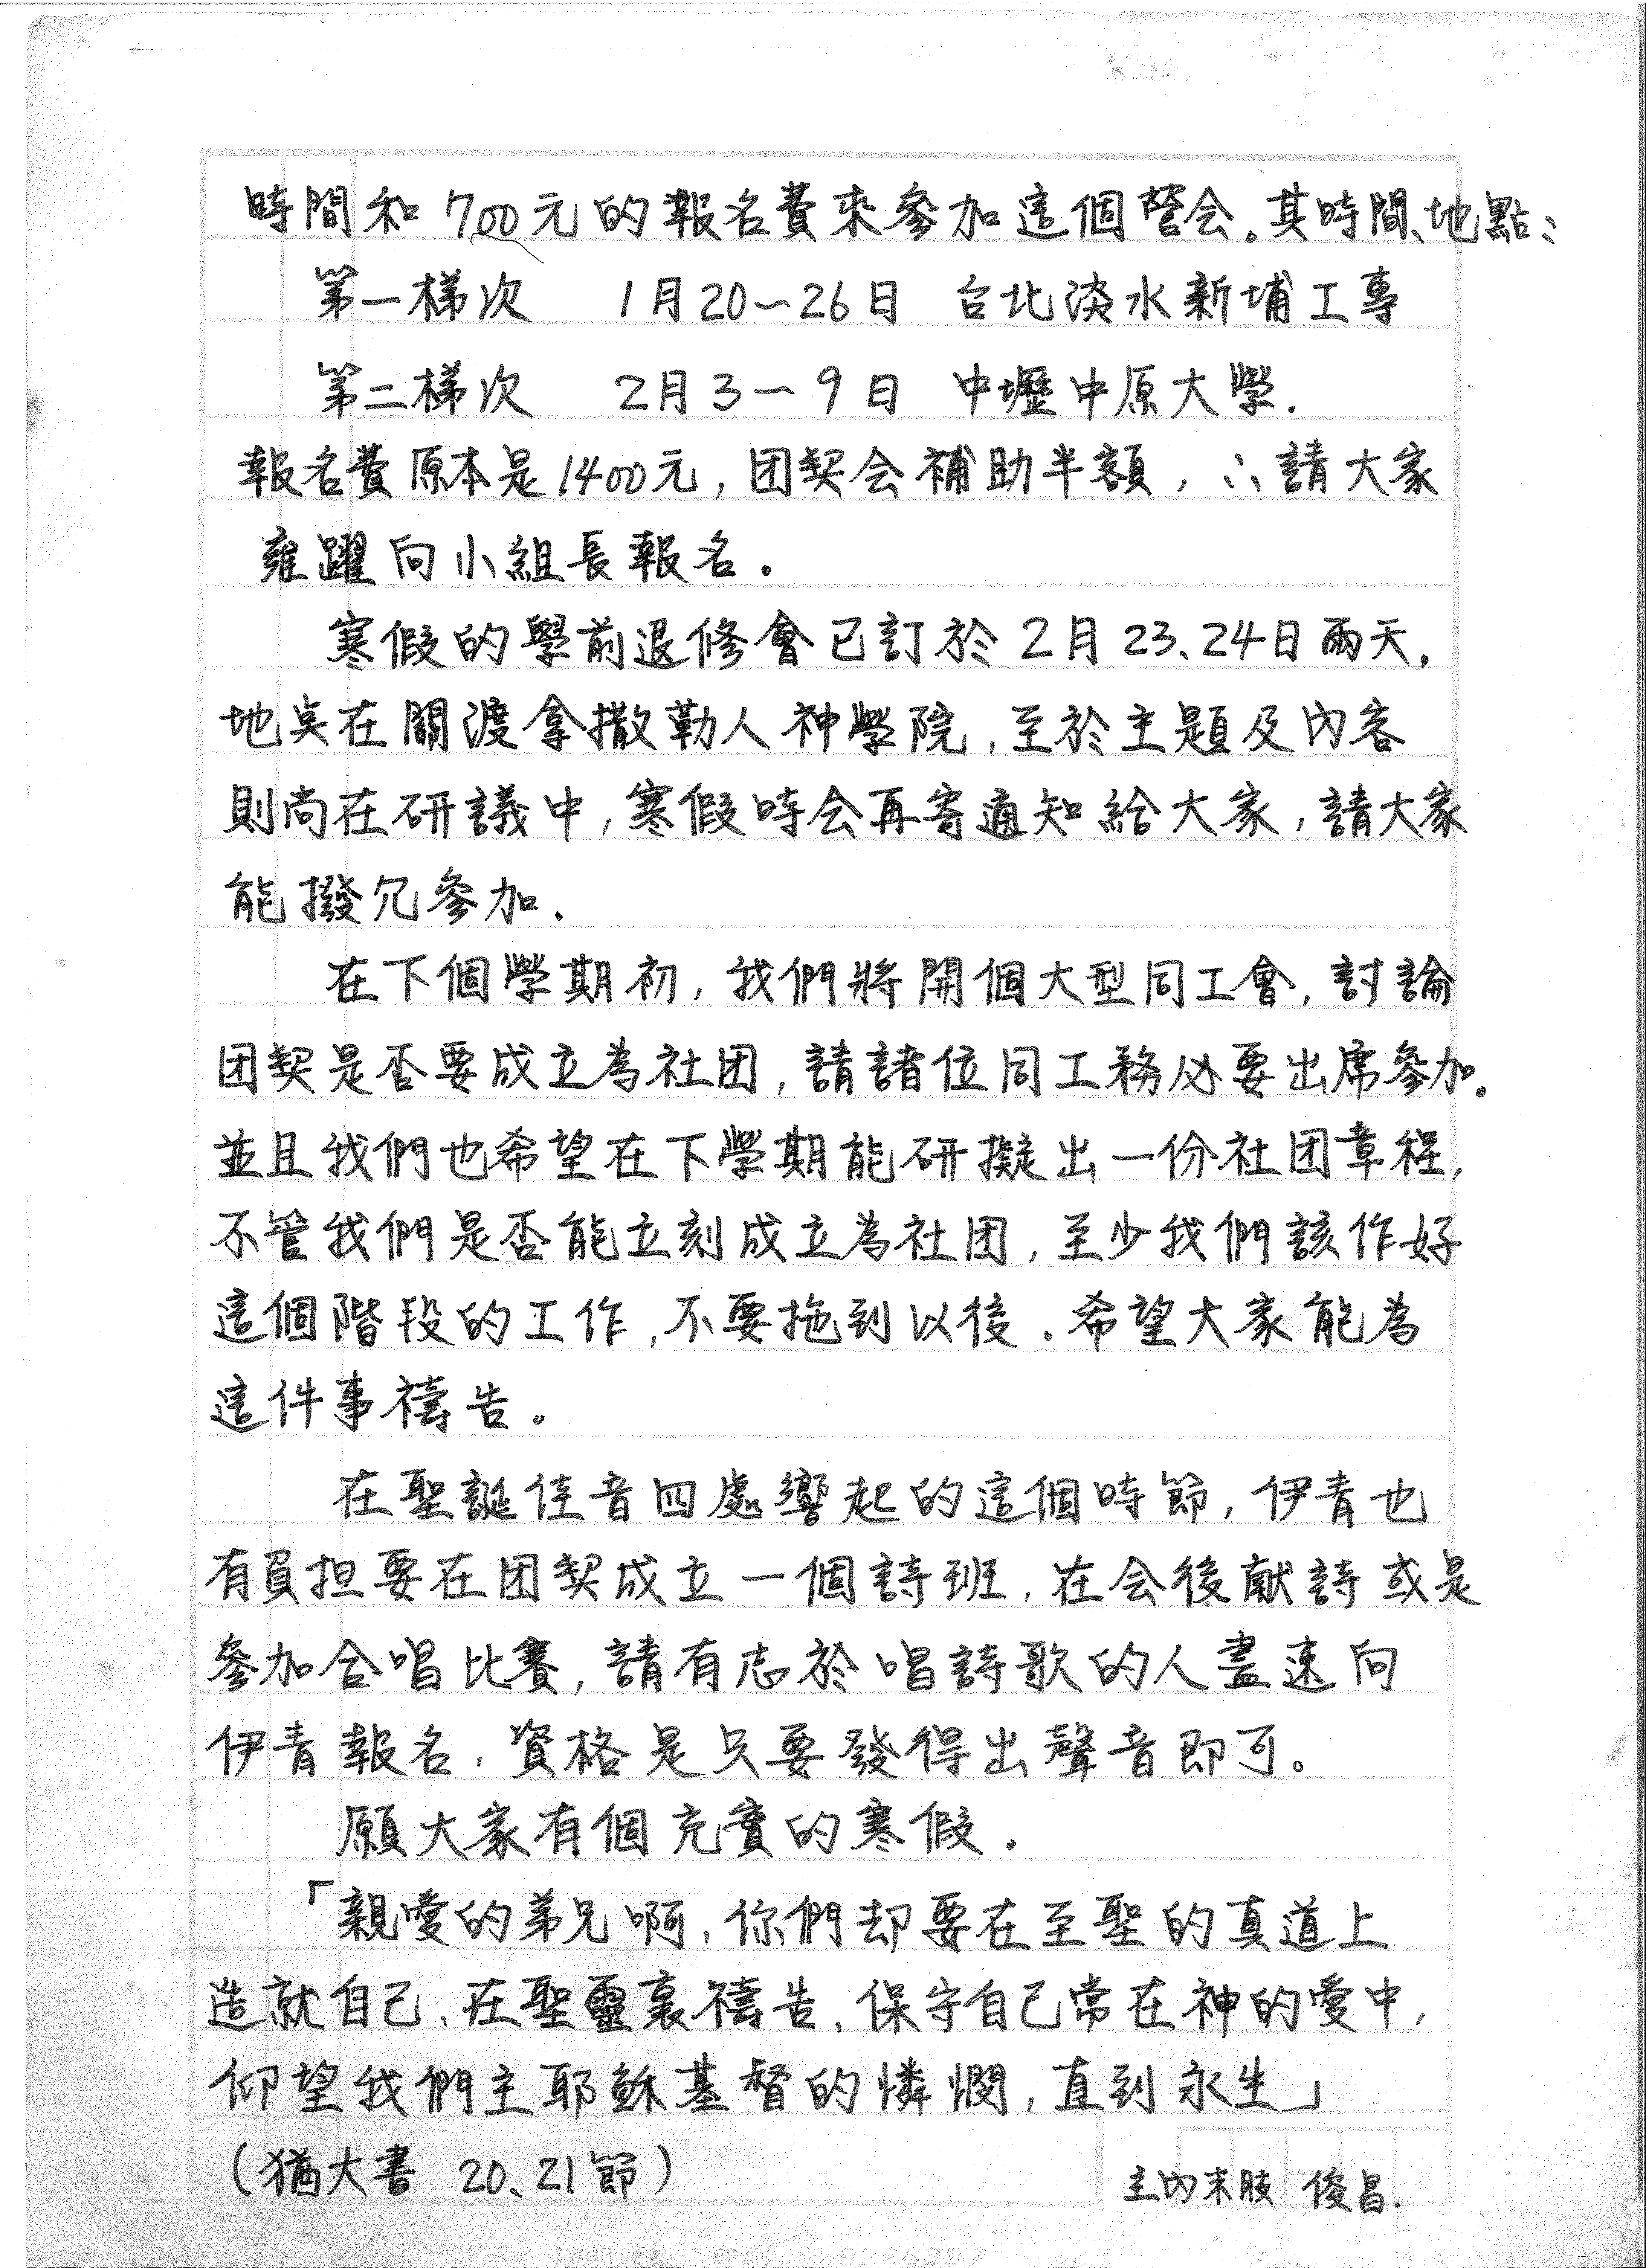 時間和700元的報名費來參加這個營会。其時間、地點：
第一梯次 1月20~26日 台北淡水新埔工專
第二梯次 2月3－9日 中壢中原大學.
報名費原本是1400元,团契会補助半額,∴請大家
雍躍向小組長報名.
寒假的學前退修會已訂於2月23、24日兩天,
地点在關渡拿撒勒人神學院,至於主題及內容
則尚在研議中,寒假時会再寄通知給大家,請大家
能撥冗參加.
在下個學期初,我們將開個大型同工會,討論
团契是否要成立為社团,請諸位同工務必要出席參加。
並且我們也希望在下學期能研擬出一份社团章程,
不管我們是否能立刻成立為社团,至少我們該作好
這個階段的工作,不要拖到以後.希望大家能為
這件事禱告。
在聖誕佳音四處響起的這個時節,伊青也
有負担要在团契成立一個詩班,在会後献詩或是
參加合唱比賽,請有志於唱詩歌的人盡速向
伊青報名,資格是只要發得出聲音即可。
願大家有個充實的寒假.
「親愛的弟兄啊,你們却要在至聖的真道上
造就自己、在聖靈裏禱告、保守自己常在神的愛中,
仰望我們主耶穌基督的憐憫,直到永生」
(猶大書 20、21節)
主內末肢 俊昌.
8226397